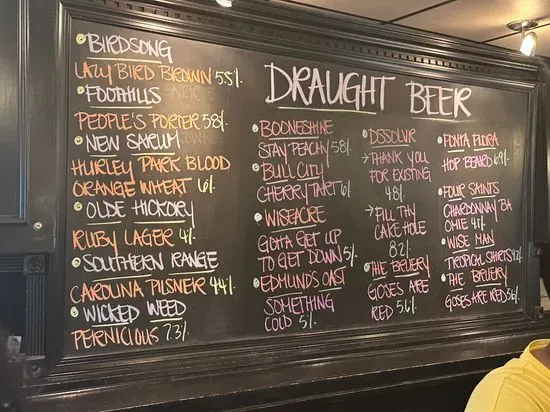 DRAUGHT BEER
BIRDSONG
LAZY BIRD BROWN 5.5%
FOOTHILLS
PEOPLE'S PORTER 5.8%
NEW SARUM
HURLEY PARK BLOOD
ORANGE WHEAT 6%
OLDE HICKORY
RUBY LAGER 4%
SOUTHERN RANGE
CAROLINA PILSNER 4.4%
WICKED WEED
PERNICIOUS 7.3%
BOONESHINE
STAY PEACHY 5.8%
BULL CITY
CHERRY TART 6%
WISEACRE
GOTTA GET UP
TO GET DOWN 5%
EDMUNDS OAST
SOMETHING
COLD 5%
DSSOLVR
→THANK YOU
FOR EXISTING
4.8%
→FILL THY
CAKE HOLE
8.2%
THE BRUERY
GOSES ARE
RED 5.6%
FONTA FLORA
HOP BEARD 6.9%
FOUR SAINTS
CHARDONNAY BA
OMIE
WISE MAN
TROPICAL SHIRTS
THE BRUERY
GOSES ARE RED 5.6%